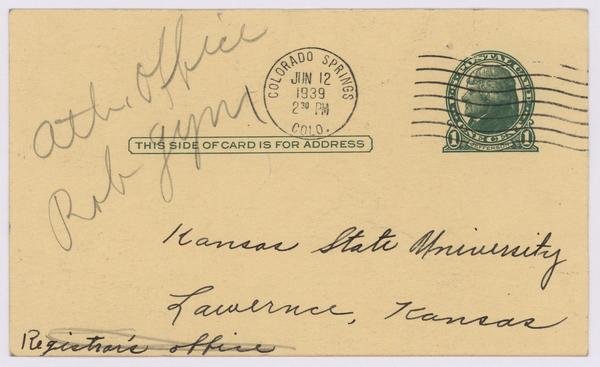 Ath. Office
Rob gym
COLORADO SPRINGS
JUN 12
1939
2 30 PM
COLO.
THIS SIDE OF CARD IS FOR ADDRESS
1 JEFFERSON 1
Kansas State University
Lawernce, Kansas
Registrar's office